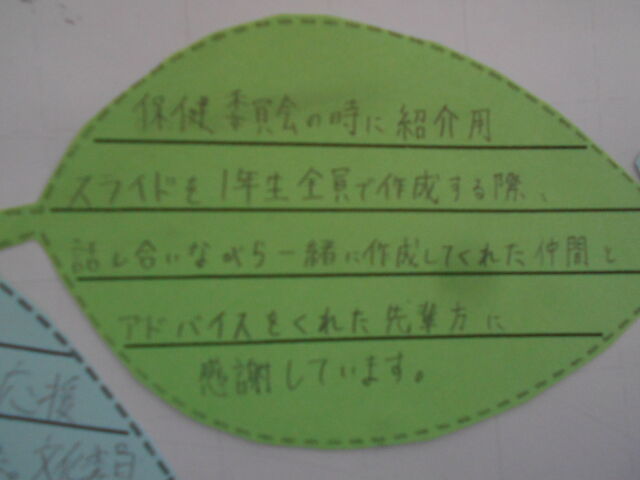 保健委員会の時に紹介用
スライドを1年生全員で作成する際、
話し合いながら一緒に作成してくれた仲間と
アドバイスをくれた先輩方に
感謝しています。
応援